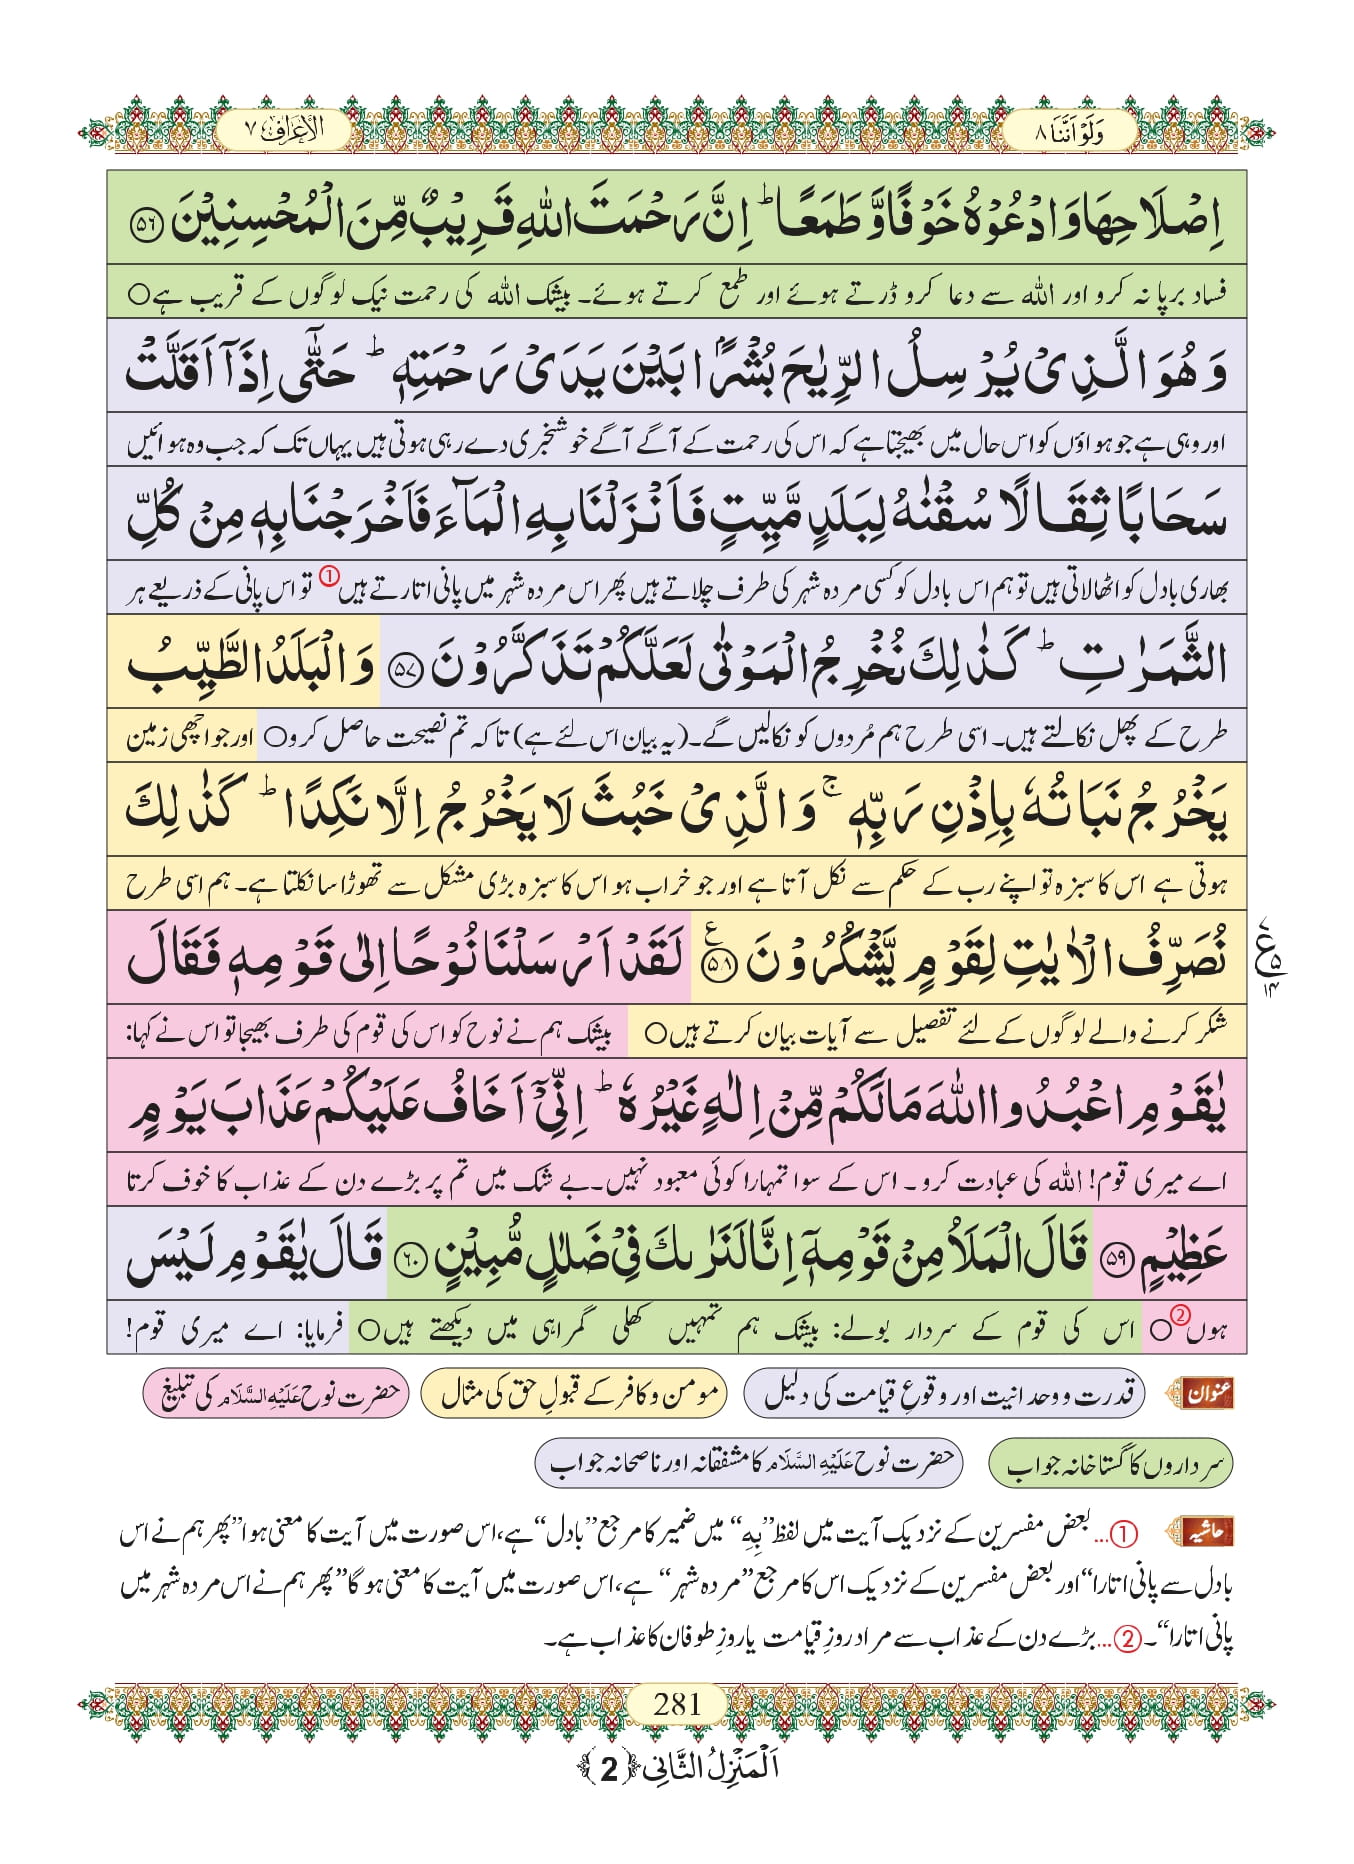 وَلَوْ اَنَّنَا ۸
الاعراف ۷
اِصْلَاحِهَا وَادْعُوْهُ خَوْفًا وَّطَمَعًا ؕ اِنَّ رَحْمَتَ اللّٰهِ قَرِیْبٌ مِّنَ الْمُحْسِنِیْنَ ﴿۵۶﴾
فساد برپا نہ کرو اور اللہ سے دعا کرو ڈرتے ہوئے اور طمع کرتے ہوئے۔ بیشک اللہ کی رحمت نیک لوگوں کے قریب ہے○
وَهُوَ الَّذِیْ یُرْسِلُ الرِّیٰحَ بُشْرًۢا بَیْنَ یَدَیْ رَحْمَتِهٖ ؕ حَتّٰۤی اِذَاۤ اَقَلَّتْ
اور وہی ہے جو ہواؤں کو اس حال میں بھیجتا ہے کہ اس کی رحمت کے آگے آگے خوشخبری دے رہی ہوتی ہیں یہاں تک کہ جب وہ ہوائیں
سَحَابًا ثِقَالًا سُقْنٰهُ لِبَلَدٍ مَّیِّتٍ فَاَنْزَلْنَا بِهِ الْمَآءَ فَاَخْرَجْنَا بِهٖ مِنْ كُلِّ
بھاری بادل کو اٹھا لاتی ہیں تو ہم اس بادل کو کسی مردہ شہر کی طرف چلاتے ہیں پھر اس مردہ شہر میں پانی اتارتے ہیں① تو اس پانی کے ذریعے ہر
الثَّمَرٰتِ ؕ كَذٰلِكَ نُخْرِجُ الْمَوْتٰی لَعَلَّكُمْ تَذَكَّرُوْنَ ﴿۵۷﴾ وَالْبَلَدُ الطَّیِّبُ
طرح کے پھل نکالتے ہیں۔ اسی طرح ہم مُردوں کو نکالیں گے۔ (یہ بیان اس لئے ہے) تاکہ تم نصیحت حاصل کرو○ اور جو اچھی زمین
یَخْرُجُ نَبَاتُهٗ بِاِذْنِ رَبِّهٖ ۚ وَالَّذِیْ خَبُثَ لَا یَخْرُجُ اِلَّا نَكِدًا ؕ كَذٰلِكَ
ہوتی ہے اس کا سبزہ تو اپنے رب کے حکم سے نکل آتا ہے اور جو خراب ہو اس کا سبزہ بڑی مشکل سے تھوڑا سا نکلتا ہے۔ ہم اسی طرح
نُصَرِّفُ الْاٰیٰتِ لِقَوْمٍ یَّشْكُرُوْنَ ﴿۵۸﴾ ع لَقَدْ اَرْسَلْنَا نُوْحًا اِلٰی قَوْمِهٖ فَقَالَ
ع ۵ ۱۴
شکر کرنے والے لوگوں کے لئے تفصیل سے آیات بیان کرتے ہیں○ بیشک ہم نے نوح کو اس کی قوم کی طرف بھیجا تو اس نے کہا:
یٰقَوْمِ اعْبُدُوا اللّٰهَ مَا لَكُمْ مِّنْ اِلٰهٍ غَیْرُهٗ ؕ اِنِّیْۤ اَخَافُ عَلَیْكُمْ عَذَابَ یَوْمٍ
اے میری قوم! اللہ کی عبادت کرو۔ اس کے سوا تمہارا کوئی معبود نہیں۔ بے شک میں تم پر بڑے دن کے عذاب کا خوف کرتا
عَظِیْمٍ ﴿۵۹﴾ قَالَ الْمَلَاُ مِنْ قَوْمِهٖۤ اِنَّا لَنَرٰىكَ فِیْ ضَلٰلٍ مُّبِیْنٍ ﴿۶۰﴾ قَالَ یٰقَوْمِ لَیْسَ
ہوں②○ اس کی قوم کے سردار بولے: بیشک ہم تمہیں کھلی گمراہی میں دیکھتے ہیں○ فرمایا: اے میری قوم!
عنوان قدرت و وحدانیت اور وقوعِ قیامت کی دلیل مومن و کافر کے قبولِ حق کی مثال حضرت نوح عَلَیْهِ السَّلَام کی تبلیغ
سرداروں کا گستاخانہ جواب حضرت نوح عَلَیْهِ السَّلَام کا مشفقانہ اور ناصحانہ جواب
حاشیہ ①...بعض مفسرین کے نزدیک آیت میں لفظ ”بِهِ“ میں ضمیر کا مرجع ”بادل“ ہے، اس صورت میں آیت کا معنی ہوا ”پھر ہم نے اس
بادل سے پانی اتارا“ اور بعض مفسرین کے نزدیک اس کا مرجع ”مردہ شہر“ ہے، اس صورت میں آیت کا معنی ہوگا ”پھر ہم نے اس مردہ شہر میں
پانی اتارا“۔ ②...بڑے دن کے عذاب سے مراد روزِ قیامت یا روزِ طوفان کا عذاب ہے۔
281
اَلْمَنْزِلُ الثَّانِی ﴿2﴾